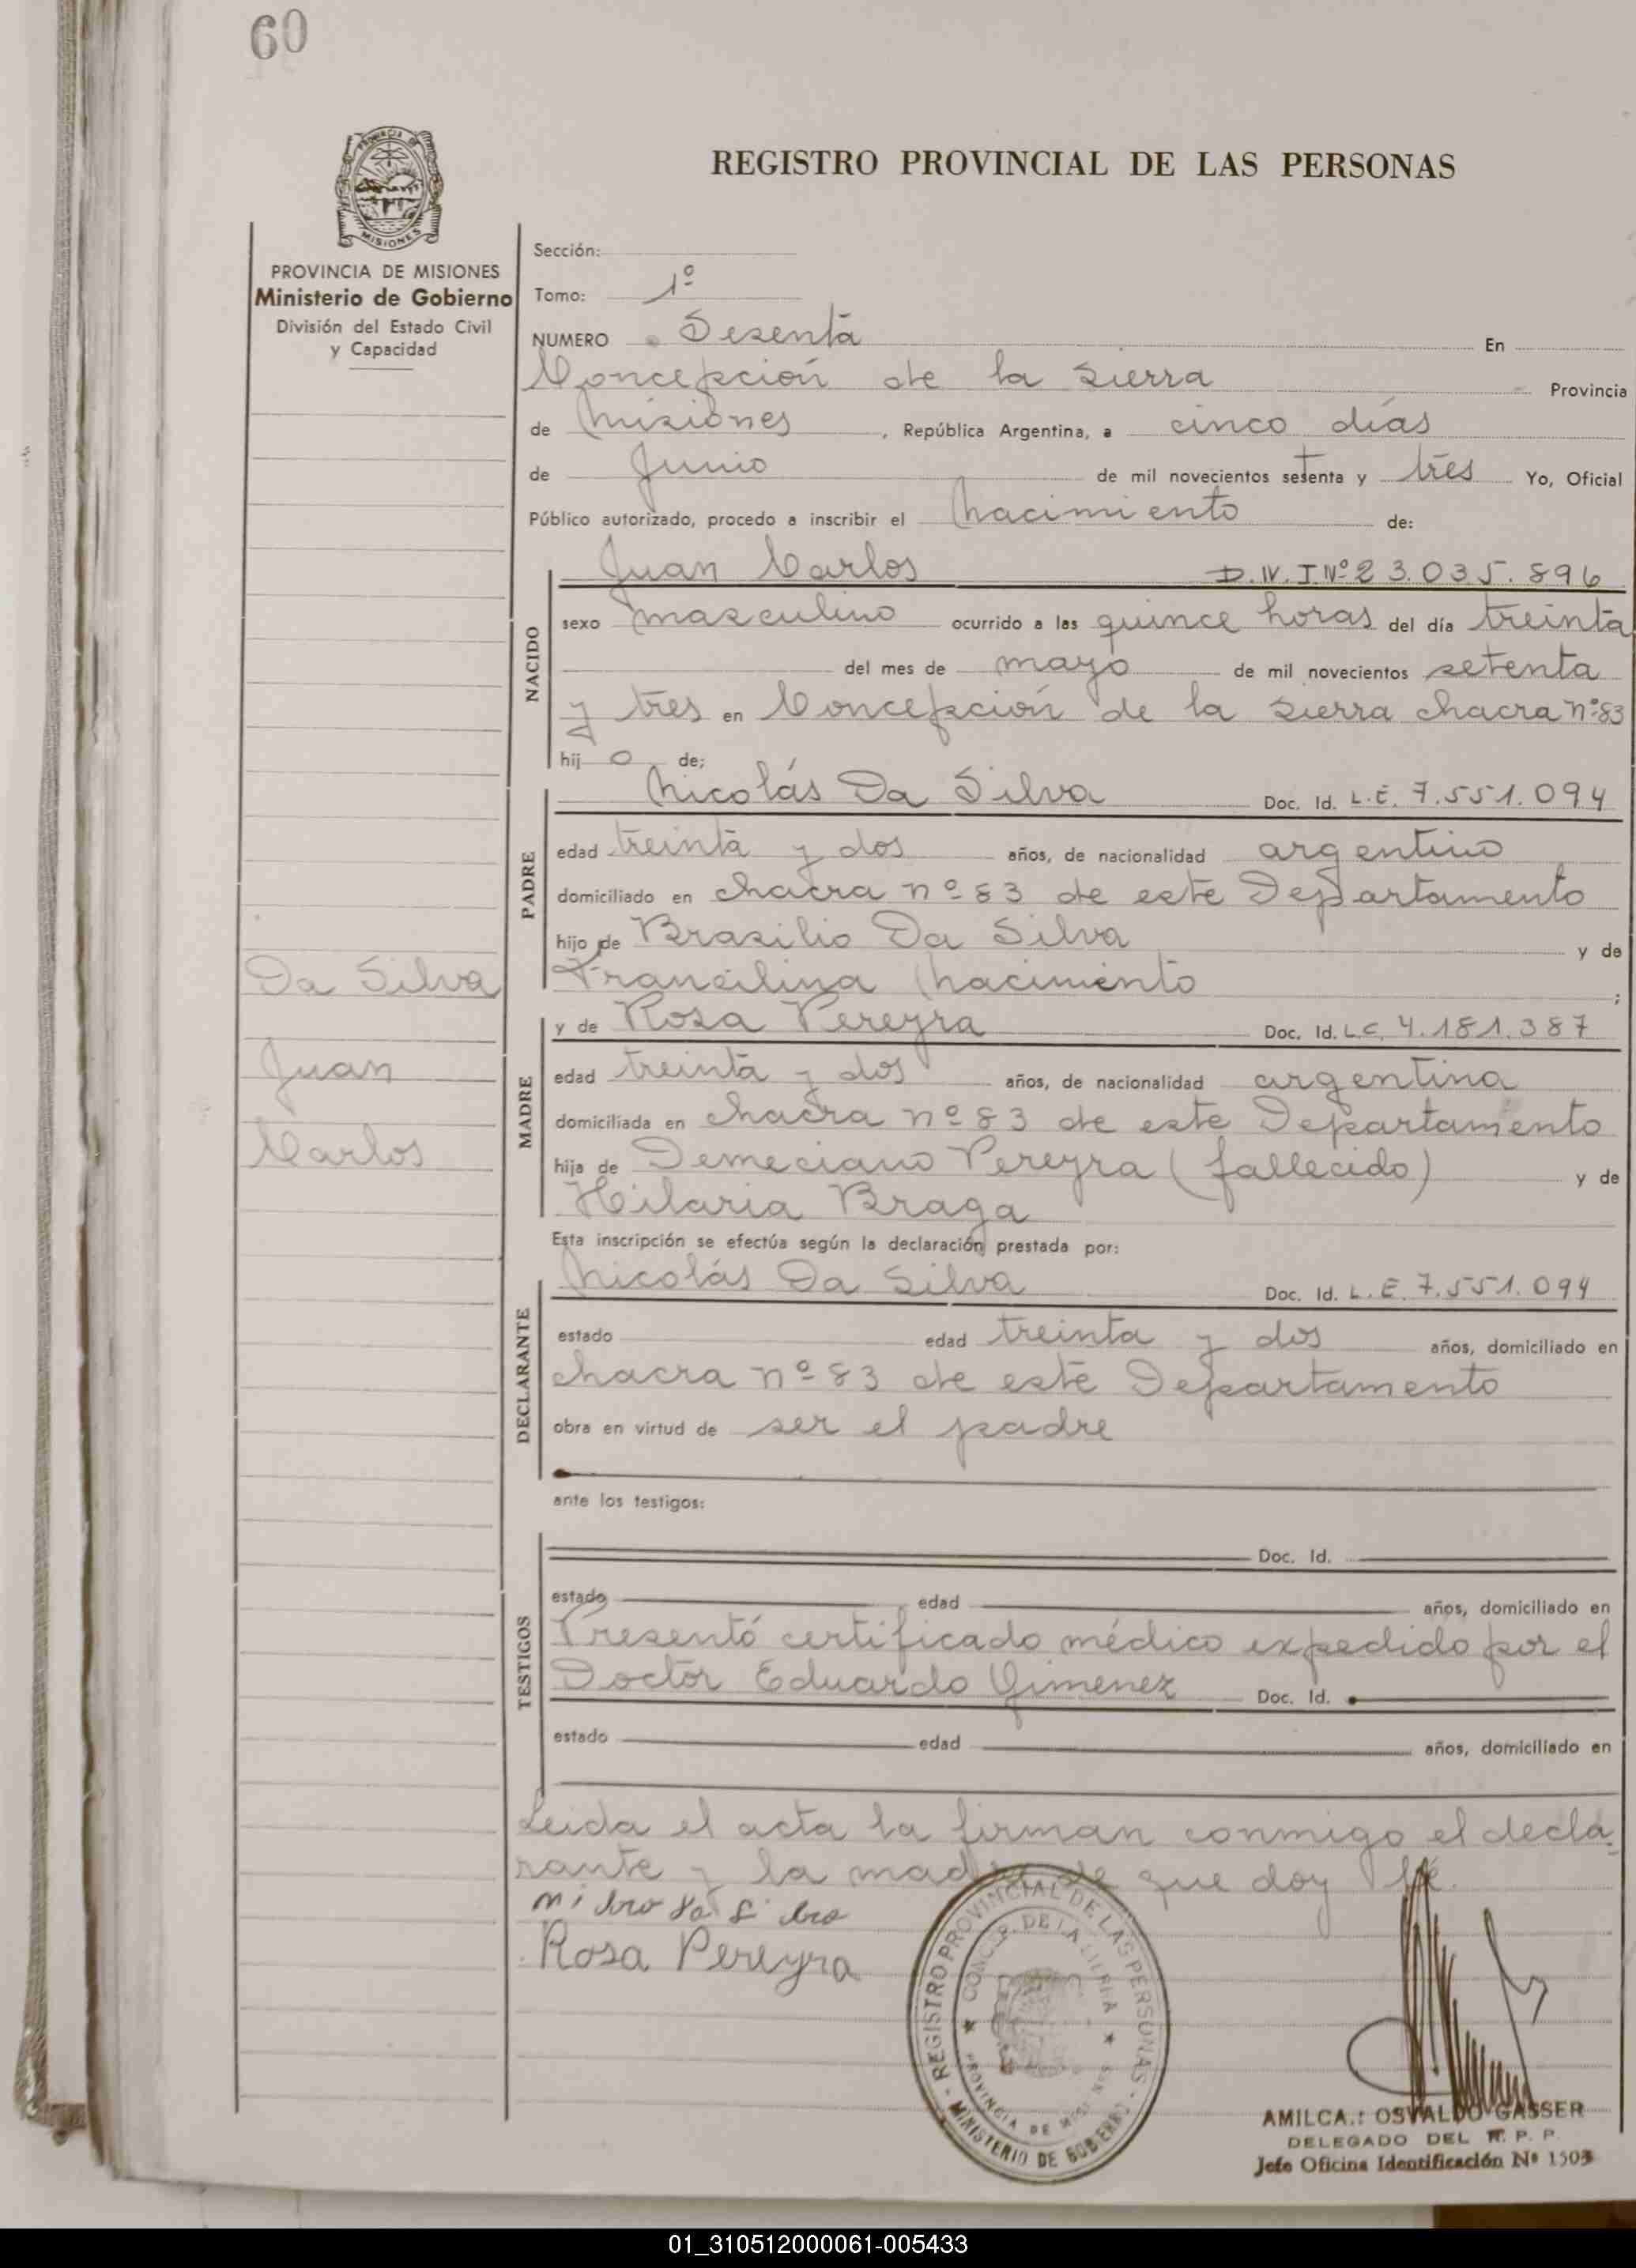 60
REGISTRO PROVINCIAL DE LAS PERSONAS
MISIONES
PROVINCIA DE MISIONES
Ministerio de Gobierno
División del Estado Civil
y Capacidad
Sección:
Tomo: 1º
NUMERO Sesenta En
Concepción de la Sierra Provincia
de Misiones, República Argentina, a cinco días
de Junio de mil novecientos setenta y tres Yo, Oficial
Público autorizado, procedo a inscribir el Nacimiento de:
NACIDO
Juan Carlos D.N.I Nº 23.035.896
sexo masculino ocurrido a las quince horas del día treinta
del mes de mayo de mil novecientos setenta
y tres en Concepción de la Sierra chacra nº 83
hij o de;
PADRE
Nicolás Da Silva Doc. Id. L.E. 7.551.094
edad treinta y dos años, de nacionalidad argentino
domiciliado en chacra nº 83 de este Departamento
hijo de Brasilio Da Silva y de
Francilina Nacimiento ;
Da Silva
Juan
Carlos
MADRE
y de Rosa Pereyra Doc. Id. L.C. 4.181.387
edad treinta y dos años, de nacionalidad argentina
domiciliada en chacra nº 83 de este Departamento
hija de Demeciano Pereyra (fallecido) y de
Hilaria Braga
Esta inscripción se efectúa según la declaración prestada por:
DECLARANTE
Nicolás Da Silva Doc. Id. L.E. 7.551.094
estado edad treinta y dos años, domiciliado en
chacra nº 83 de este Departamento
obra en virtud de ser el padre
ante los testigos:
TESTIGOS
Doc. Id.
estado edad años, domiciliado en
Presentó certificado médico expedido por el
Doctor Eduardo Gimenez Doc. Id.
estado edad años, domiciliado en
Leida el acta la firman conmigo el decla-
rante y la madre de que doy fé.
Rosa Pereyra
REGISTRO PROVINCIAL DE LAS PERSONAS
CONCEP. DE LA SIERRA
PROVINCIA DE MISIONES
MINISTERIO DE GOBIERNO
AMILCA.: OSVALDO GASSER
DELEGADO DEL R. P. P.
Jefe Oficina Identificación Nº 1503
01_310512000061-005433